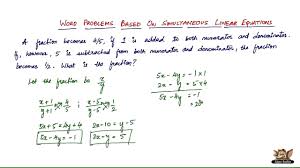 WORD PROBLEMS BASED ON SIMULTANEOUS LINEAR EQUATIONS
A fraction becomes 4/5, if 1 is added to both numerator and denominator.
If, however, 5 is subtracted from both numerator and denominator, the fraction
becomes 1/2. What is the fraction?
Let the fraction be x/y
(x+1)/(y+1) = 4/5 ; (x-5)/(y-5) = 1/2
5x+5 = 4y+4 2x-10 = y-5
5x-4y = -1 2x-y = 5
5x - 4y = -1 × 1
2x - y = 5 × 4
5x - 4y = -1